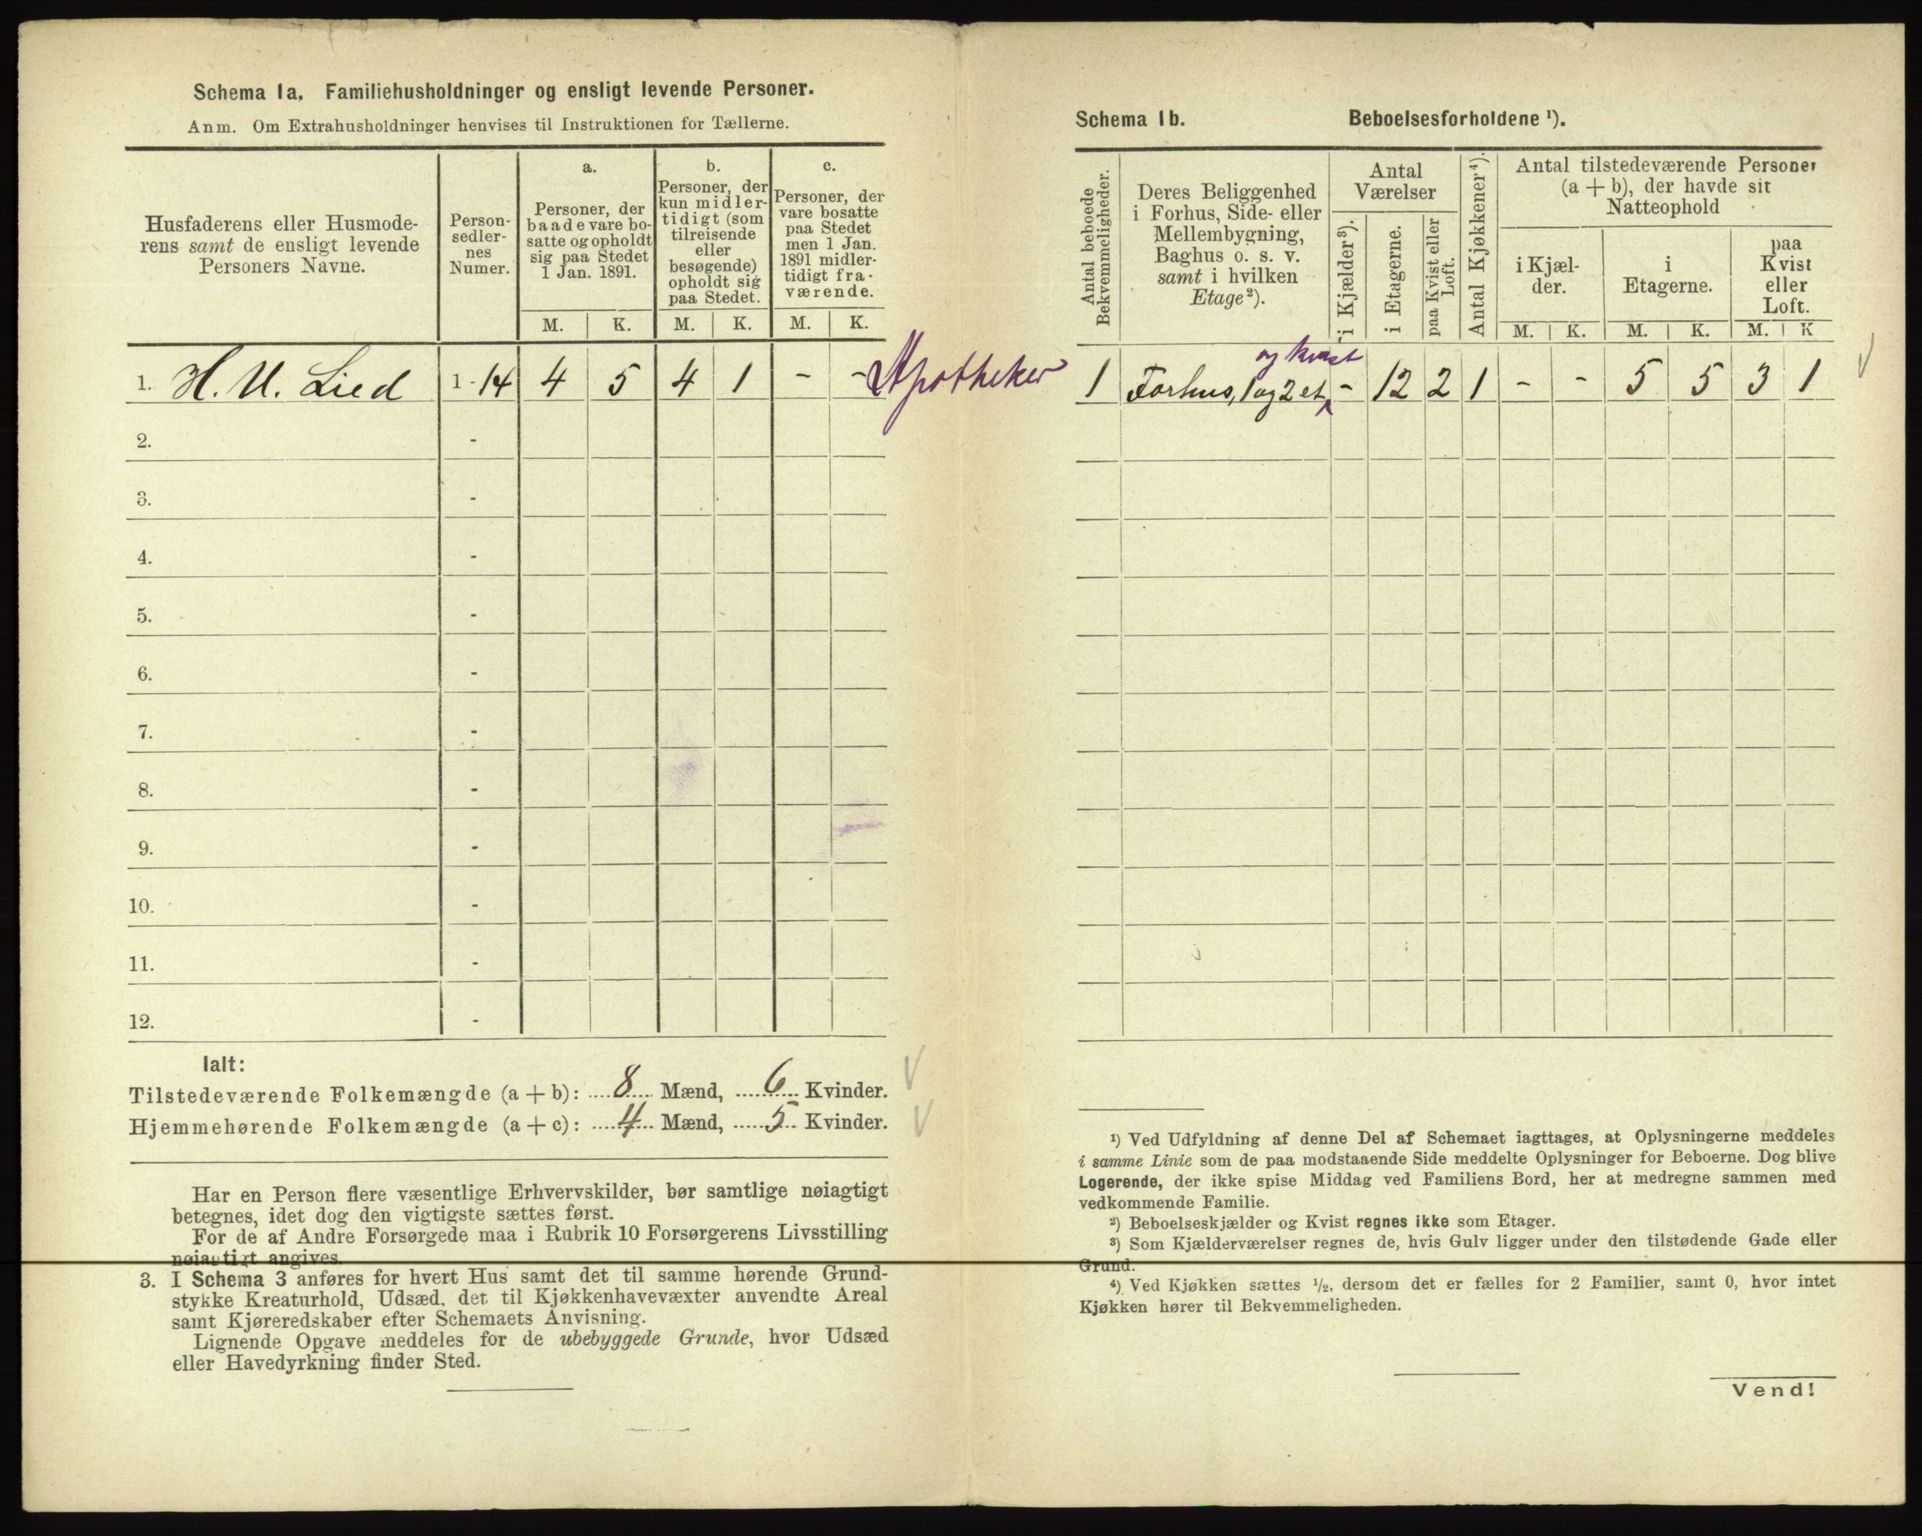 Schema 1a. Familiehusholdninger og ensligt levende Personer.
Anm. Om Extrahusholdninger henvises til Instruktionen for Tællerne.
Husfaderens eller Husmode-
rens samt de ensligt levende
Personers Navne.
Person-
sedler-
nes
Numer.
a.
Personer, der
baade vare bo-
satte og opholdt
sig paa Stedet
1 Jan. 1891.
b.
Personer, der
kun midler-
tidigt (som
tilreisende
eller
besøgende)
opholdt sig
paa Stedet.
c.
Personer, der
vare bosatte
paa Stedet
men 1 Jan.
1891 midler-
tidigt fra-
værende.
M. K. M. K. M. K.
1. H. U. Lied 1 - 14 4 5 4 1 - - Apotheker
2. -
3. -
4. -
5. -
6. -
7. -
8. -
9. -
10. -
11. -
12. -
Ialt:
Tilstedeværende Folkemængde (a + b): 8 Mænd, 6 Kvinder.
Hjemmehørende Folkemængde (a + c): 4 Mænd, 5 Kvinder.
Har en Person flere væsentlige Erhvervskilder, bør samtlige nøiagtigt
betegnes, idet dog den vigtigste sættes først.
For de af Andre Forsørgede maa i Rubrik 10 Forsørgerens Livsstilling
nøiagtigt angives.
3. I Schema 3 anføres for hvert Hus samt det til samme hørende Grund-
stykke Kreaturhold, Udsæd, det til Kjøkkenhavevæxter anvendte Areal
samt Kjøreredskaber efter Schemaets Anvisning.
Lignende Opgave meddeles for de ubebyggede Grunde, hvor Udsæd
eller Havedyrkning finder Sted.
Schema 1b. Beboelsesforholdene ¹).
Antal beboede
Bekvemmeligheder.
Deres Beliggenhed
i Forhus, Side- eller
Mellembygning,
Baghus o. s. v.
samt i hvilken
Etage ²).
Antal
Værelser
i Kjælder ³).
i Etagerne.
paa Kvist eller
Loft.
Antal Kjøkkener ⁴).
Antal tilstedeværende Personer
(a + b), der havde sit
Natteophold
i Kjæl-
der.
i
Etagerne.
paa
Kvist
eller
Loft.
M. K. M. K. M. K
og kvist
1 Forhus, 1 og 2 et, - 12 2 1 - - 5 5 3 1
¹) Ved Udfyldning af denne Del af Schemaet iagttages, at Oplysningerne meddeles
i samme Linie som de paa modstaaende Side meddelte Oplysninger for Beboerne. Dog blive
Logerende, der ikke spise Middag ved Familiens Bord, her at medregne sammen med
vedkommende Familie.
²) Beboelseskjælder og Kvist regnes ikke som Etager.
³) Som Kjælderværelser regnes de, hvis Gulv ligger under den tilstødende Gade eller
Grund.
⁴) Ved Kjøkken sættes ½, dersom det er fælles for 2 Familier, samt 0, hvor intet
Kjøkken hører til Bekvemmeligheden.
Vend!